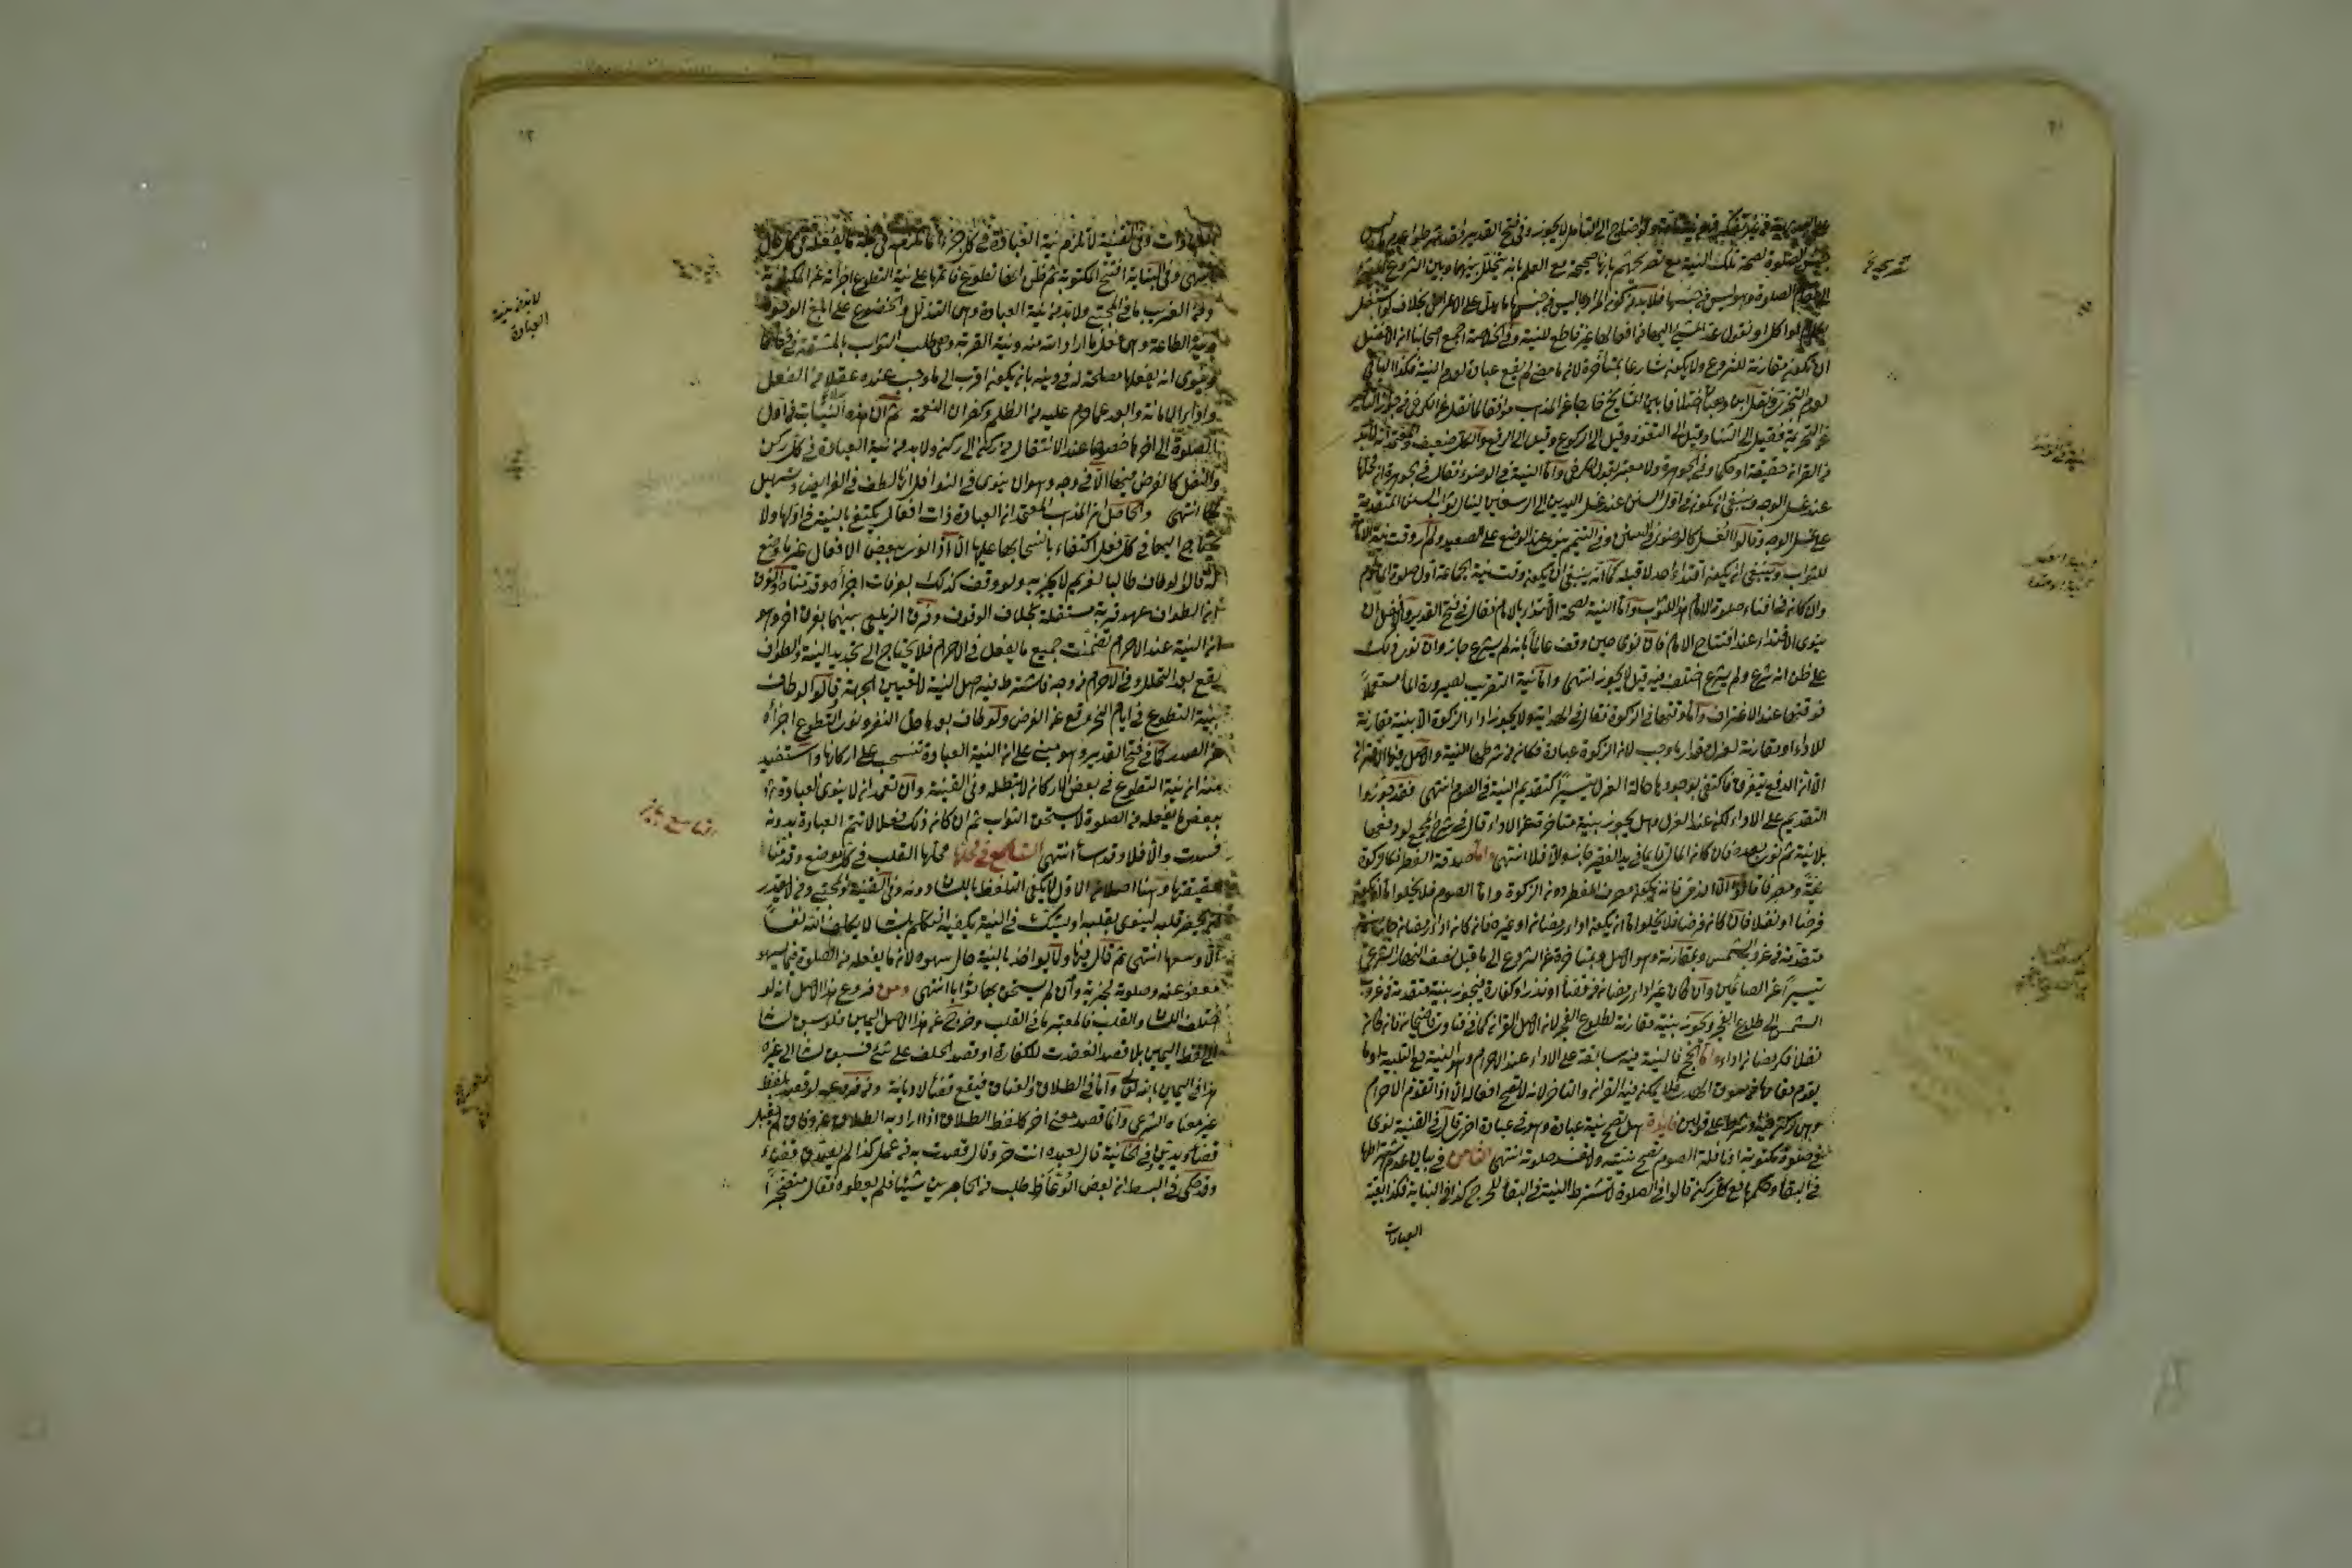 على البديهة من غير تفكر فهو نية تامة ولو احتاج الى التأمل لا يجوز وفى فتح القدير فقد شرطوا عدم ما ليس
من جنس الصلوة لصحة تلك النية مع تصريحهم بانها صحيحة مع العلم بانه يتخلل بينهما وبين الشروع المشى
الى مقام الصلوة وهو ليس من جنسها فلا بد من كون المراد بما ليس من جنسها ما يدل على الاعراض بخلاف ما لو اشتغل
بكلام او اكل او نقول عد المشى اليها من افعالها غير قاطع للنية وفى الخلاصة اجمع اصحابنا ان الافضل
ان تكون مقارنة للشروع ولا يكون شارعا بمتأخرة لان ما مضى لم يقع عبادة لعدم النية فكذا الباقى
لعدم التجزى ونقل ابن وهبان اختلافا بين المشايخ خارجا عن المذهب موافقا لما نقل عن الكرخى فى جواز التأخير
عن التحريمة فقيل الى الثنا وقيل الى التعوذ وقيل الى الركوع وقيل الى الرفع والكل ضعيف والمعتمد انه لا بد
من القران حقيقة او حكما وفى الجوهرة ولا معتبر بقول الكرخى واما النية فى الوضوء فقال فى الجوهرة ان محلها
عند غسل الوجه وينبغى ان تكون فى اول السنن عند غسل اليدين الى الرسغين لينال ثواب السنن المتقدمة
على غسل الوجه وقالوا الغسل كالوضوء فى السنن وفى التيمم ينوى عند الوضع على الصعيد ولم ار وقت نية الامامة
للثواب وينبغى ان يكون اقتداء احد لا قبله كما انه ينبغى ان يكون وقت نية الجماعة اول صلوة المأموم
وان كان فى اثناء صلوة الامام هذا للثواب واما النية لصحة الاقتداء بالامام فقال فى فتح القدير والافضل ان
ينوى الاقتداء عند افتتاح الامام فان نوى حين وقف عالما بانه لم يشرع جاز وان نوى ذلك
على ظن انه شرع ولم يشرع اختلف فيه قيل لا يجوز انتهى واما نية التقرب لصيرورة الماء مستعملا
فوقتها عند الاغتراف واما وقتها فى الزكوة فقال فى الهداية ولا يجوز اداء الزكوة الا بنية مقارنة
للاداء او مقارنة لعزل مقدار ما وجب لان الزكوة عبادة فكان من شرطها النية والاصل فيها الاقتران
الا ان الدفع يتفرق فاكتفى بوجودها حالة العزل تيسيرا كتقديم النية فى الصوم انتهى فقد جوزوا
التقديم على الاداء لكن عند العزل وهل يجوز بنية متأخرة عن الاداء قال فى شرح المجمع لو دفعها
بلا نية ثم نوى بعده فان كان المال قائما فى يد الفقير جاز والا فلا انتهى واما صدقة الفطر فكالزكوة
نية ومصرفا قالوا الا الذمى فانه يكون مصرف الفطر دون الزكوة واما الصوم فلا يخلوا اما ان يكون
فرضا او نفلا فان كان فرضا فلا يخلوا اما ان يكون اداء رمضان او غيره فان كان اداء رمضان جاز بنية
متقدمة من غروب الشمس وبمقارنة وهو الاصل وبمتأخرة عن الشروع الى ما قبل نصف النهار الشرعى
تيسيرا على الصائمين وان كان غير اداء رمضان من قضأ او نذر او كفارة فيجوز بنية متقدمة من غروب
الشمس الى طلوع الفجر وتجوز بنية مقارنة لطلوع الفجر لان الاصل القران كما فى فتاوى قاضيخان وان كان
نفلا فكرمضان اداء واما الحج فالنية فيه سابقة على الاداء عند الاحرام وهو النية مع التلبية او ما
يقوم مقامها من سوق الهدى فلا يمكن فيه القران والتأخر لانه لا تصح افعاله الا اذا تقدم الاحرام
وهى ركن فيه او شرط على قولين فايدة هل تصح نية عبادة وهو فى عبادة اخرى قال فى القنية نوى
فى صلوة مكتوبة او نافلة الصوم تصح نيته ولا تفسد صلوته انتهى الثامن فى بيان عدم اشتراطها
فى البقاء وحكمها مع كل ركن قالوا فى الصلوة لا تشترط النية فى البقأ للحرج كذا فى النهاية فكذا بقية
العبادات
العبادات وفى القنية لا تلزم نية العبادة فى كل جزء انما تلزم فى جملة ما يفعله فى كل حال
انتهى وفى البناية افتتح المكتوبة ثم ظن انها تطوع فاتمها على نية التطوع اجزأته عن المكتوبة
ومن الغريب ما فى المجتبى ولا بد من نية العبادة وهى التذلل والخضوع على ابلغ الوجوه
ونية الطاعة وهى فعل ما اراد الله منه ونية القربة وهى طلب الثواب بالمشقة فى فعلها
وينوى انه يفعلها مصلحة له فى دينه بان يكون اقرب الى ما وجب عنده عقلا من الفعل
واداء الامانة وابعد عما حرم عليه من الظلم وكفران النعمة ثم ان هذه النيات من اول
الصلوة الى اخرها خصوصا عند الانتقال من ركن الى ركن ولا بد من نية العبادة فى كل ركن
والنفل كالفرض فيها الا فى وجه وهو ان ينوى فى النوافل انها لطف فى الفرائض وتسهيل
لها انتهى والحاصل ان المذهب المعتمد ان العبادة ذات افعال يكتفى بالنية فى اولها ولا
يحتاج اليها فى كل فعل اكتفاء بانسحابها عليها الا اذا نوى ببعض الافعال غير ما وضع
له قالوا لو طاف طالبا لغريم لا يجزيه ولو وقف كذلك بعرفات اجزأه وقد قدمناه والفرق
ان الطواف عهد قربة مستقلة بخلاف الوقوف وفرق الزيلعى بينهما بفرق اخر وهو
ان النية عند الاحرام تضمنت جميع ما يفعل فى الاحرام فلا يحتاج الى تجديد النية والطواف
يقع بعد التحلل وفى الاحرام من وجه فاشترط فيه اصل النية لا تعيين الجهة وقالوا لو طاف
بنية التطوع فى ايام النحر وقع عن الفرض ولو طاف بعد ما حل النفر ونوى التطوع اجزأه
عن الصدر كما فى فتح القدير وهو مبنى على ان النية العبادة تنسحب على اركانها واستفيد
منه ان نية التطوع فى بعض الاركان لا تبطله وفى القنية وان تعمد ان لا ينوى العبادة
ببعض ما يفعله من الصلوة لا يستحق الثواب ثم ان كان ذلك فعلا لا تتم العبادة بدونه
فسدت والا فلا وقد اسأ انتهى التاسع فى محلها محلها القلب فى كل موضع وقدمنا
حقيقتها وهنا اصلان الاول لا يكفى التلفظ باللسان دونه وفى القنية والمجتبى ومن لا يقدر
ان يحضر قلبه لينوى بقلبه او يشك فى النية يكفيه التكلم بلسانه لا يكلف الله نفسا
الا وسعها انتهى ثم قال فيها ولا يواخذ بالنية حال سهوه لان ما يفعله من الصلوة فيما يسهو
معفو عنه وصلوته مجزية وان لم يستحق بها ثوابا انتهى ومن فروع هذا الاصل انه لو
اختلف اللسان والقلب فالمعتبر ما فى القلب وخرج عن هذا الاصل اليمين فلو سبق لسانه
الى لفظ اليمين بلا قصد انعقدت للكفارة او قصد الحلف على شئ فسبق لسانه الى غيره
هذا فى اليمين بالله تعالى واما فى الطلاق والعتاق فيقع قضأ لا ديانة
غير معناه الشرعى وانما قصد معنى اخر كلفظ الطلاق اذا اراد به الطلاق عن وثاق لم يقبل
قضاء ويدين وفى الخانية قال لعبده انت حر وقال قصدت به من عمل كذا لم يصدق قضاء
وقد حكى فى البسيط ان بعض الوعاظ طلب من الحاضرين شيئا فلم يعطوه فقال متضجرا
لا بد من نية
العبادة